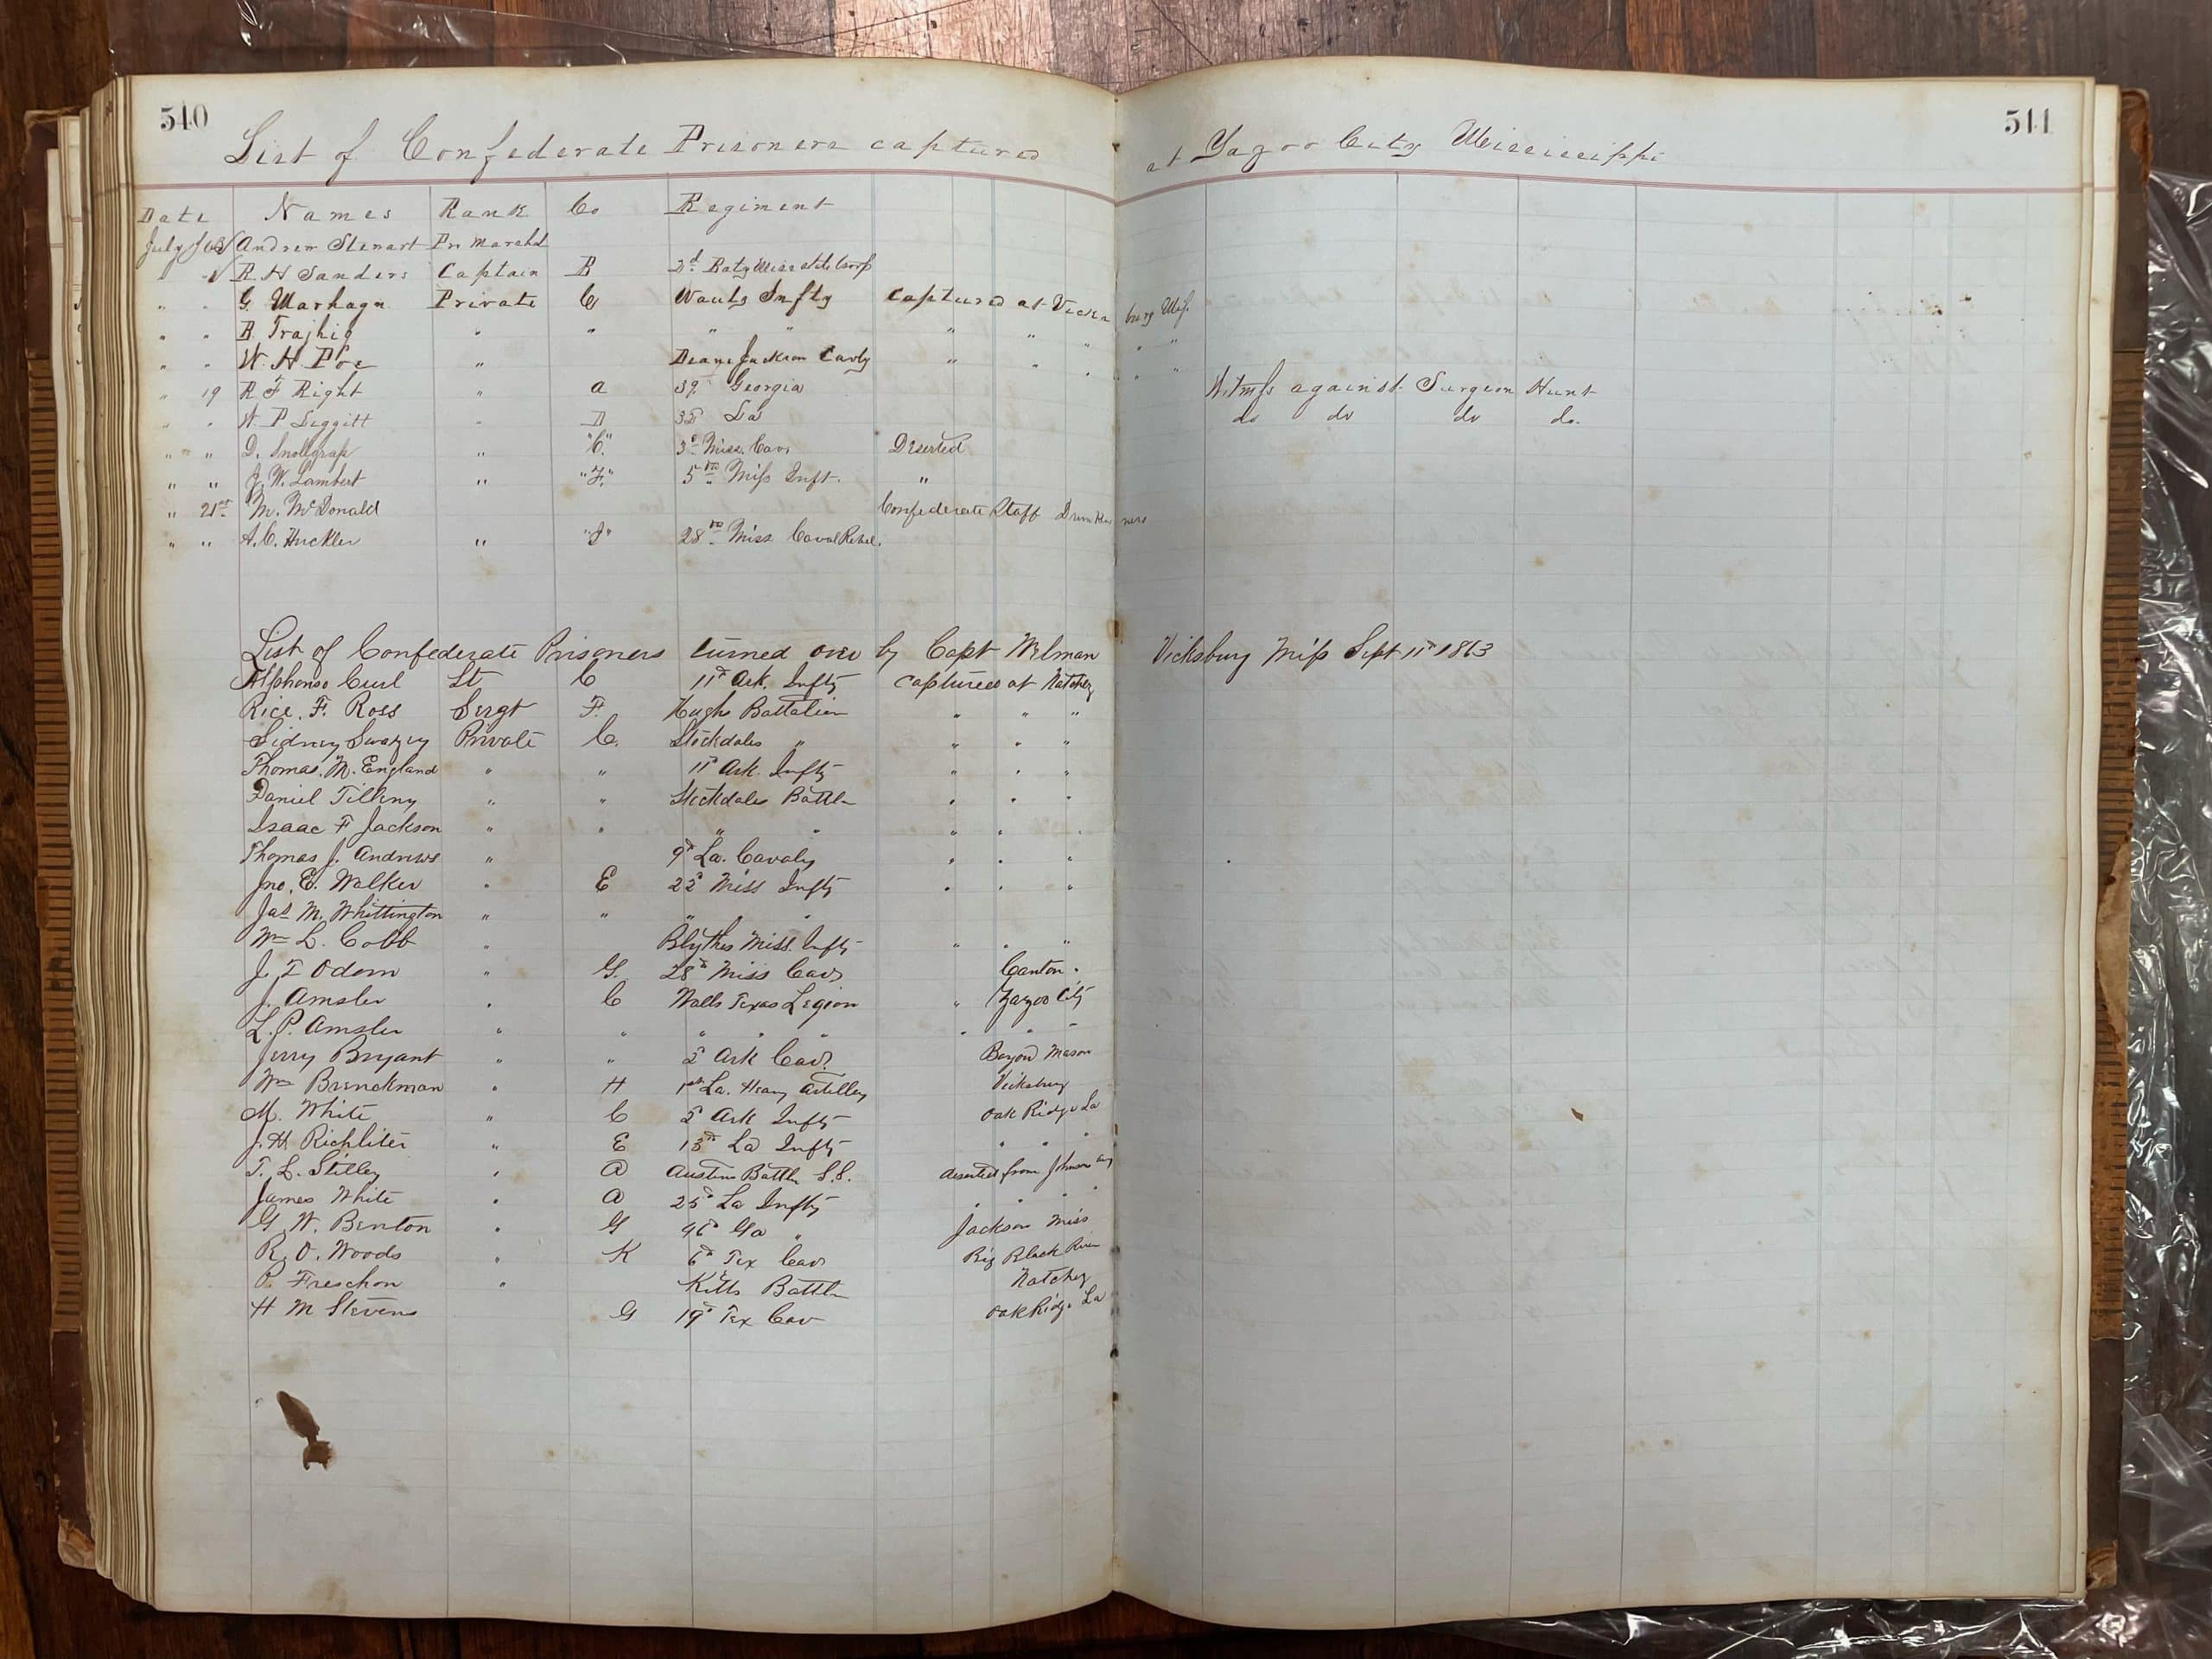 540
511
List of Confederate Prisoners captured at Yazoo City Mississippi
Date Names Rank Co Regiment
July Andrew Stewart Pr Marshal
R. H Sanders Captain B 2d Baty Miss
" " G. Private C Wauls Infty captured at Vicksburg Miss.
" " B " " " " " " " " "
" " W. H. Poe " Jackson Cavly " " " " "
" 19 R F Right " A 39 Georgia Witness against Surgeon Hunt
" " W. P Leggitt " D 35 La do do do do.
" " D. Snollgrass " "C." 3d Miss. Cav. Deserted
" " J. W. Lambert " "F." 5th Miss Inft. "
" 21st M. McDonald Confederate Staff
" " A. C. Huckler " "I" 28th Miss Caval Rebel.
List of Confederate Prisoners turned over by Capt Welman Vicksburg Miss Sept 11th 1863
Alphonso Curl Lt C 11th Ark. Infty captured at Natchez
Rice. F. Ross Sergt F. Hughs Battalion " " "
Sidney Swazey Private C. Stockdales " " " "
Thomas. M. England " " 11th Ark. Infty " " "
Daniel Tilleny " " Stockdales Battln " " "
Isaac F Jackson " " " " " " "
Thomas J. Andrews " 9th La. Cavaly " " "
Jno. E. Walker " E 22d Miss Infty " " "
Jas M. Whittington " " " "
Wm L. Cobb " Blythes Miss. Infty " " "
J. T Odom " G. 28th Miss Cav Canton "
J. Amsler " C Walls Texas Legion " Yazoo City
L. P. Amsler " " " " " " " "
Jerry Bryant " " 2d Ark Cav. Bayou Mason
Wm Brenckman " H 1st La. Heavy Artillery Vicksburg
M. White " C 2d Ark Infty Oak Ridge La
J. H Richliter " E 13th La Infty " " "
T. L. Stilley " A Austins Battln S.S. deserted from Johnson
James White " A 25th La Infty " " " "
G. W. Benton " G Ga " Jackson Miss
R. O. Woods " K 6th Tex Cav Big Black River
P. Freschon " Kitts Battln Natchez
H M Stevens G 19th Tex Cav Oak Ridge La